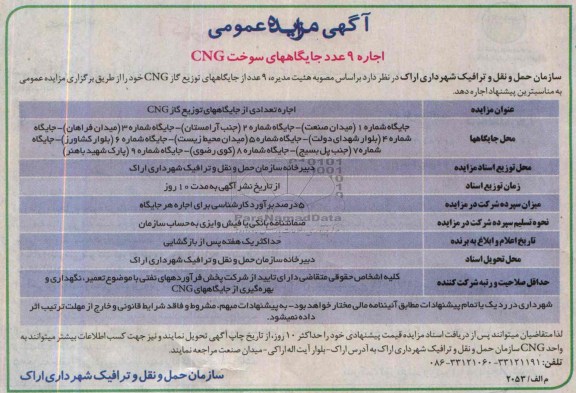 آگهی مزایده عمومی
اجاره ۹ عدد جایگاههای سوخت CNG
سازمان حمل و نقل و ترافیک شهرداری اراک در نظر دارد براساس مصوبه هئیت مدیره، ۹ عدد از جایگاههای توزیع گاز CNG خود را از طریق برگزاری مزایده عمومی
به مناسبترین پیشنهاد اجاره دهد.
عنوان مزایده
اجاره تعدادی از جایگاههای توزیع گاز CNG
محل جایگاهها
جایگاه شماره ۱ (میدان صنعت)- جایگاه شماره ۲ (جنب آرامستان)- جایگاه شماره ۳ (میدان فراهان)- جایگاه
شماره ۴ (بلوار شهدای دولت)- جایگاه شماره ۵ (میدان محیط زیست)- جایگاه شماره ۶ (بلوار کشاورز)- جایگاه
شماره ۷ (جنب پل بسیج)- جایگاه شماره ۸ (کوی رضوی)- جایگاه شماره ۹ (پارک شهید باهنر)
محل توزیع اسناد مزایده
دبیرخانه سازمان حمل و نقل و ترافیک شهرداری اراک
زمان توزیع اسناد
از تاریخ نشر آگهی به مدت ۱۰ روز
میزان سپرده شرکت در مزایده
۵ درصد برآورد کارشناسی برای اجاره هر جایگاه
نحوه تسلیم سپرده شرکت در مزایده
ضمانتنامه بانکی یا فیش واریزی به حساب سازمان
تاریخ اعلام و ابلاغ به برنده
حداکثر یک هفته پس از بازگشایی
محل تحویل اسناد
دبیرخانه سازمان حمل و نقل و ترافیک شهرداری اراک
حداقل صلاحیت و رتبه شرکت کننده
کلیه اشخاص حقوقی متقاضی دارای تایید از شرکت پخش فرآوردههای نفتی با موضوع تعمیر، نگهداری و
بهره‌گیری از جایگاههای CNG
شهرداری در رد یک یا تمام پیشنهادات مطابق آئیننامه مالی مختار خواهد بود- به پیشنهادات مبهم، مشروط و فاقد شرایط قانونی و خارج از مهلت ترتیب اثر
داده نمیشود.
لذا متقاضیان میتوانند پس از دریافت اسناد مزایده قیمت پیشنهادی خود را حداکثر ۱۰ روز، از تاریخ چاپ آگهی تحویل نمایند و نیز جهت کسب اطلاعات بیشتر میتوانند به
واحد CNG سازمان حمل و نقل و ترافیک شهرداری اراک به آدرس اراک- بلوار آیت اله اراکی- میدان صنعت مراجعه نمایند.
تلفن: ۳۳۱۲۱۱۹۱-۰۸۶-۳۳۱۲۱۰۶۰
سازمان حمل و نقل و ترافیک شهرداری اراک
م الف/ ۲۰۵۳